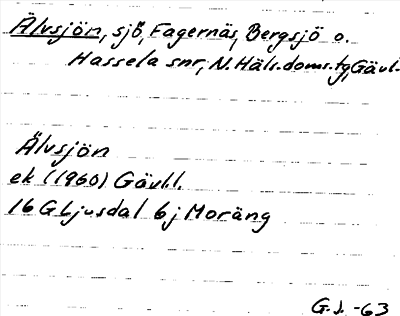 Älvsjön, sjö, Fagernäs, Bergsjö o.
Hassela snr, N. Häls. doms. tg, Gävl.
Älvsjön
ek (1960) Gävl.l.
16 G Ljusdal 6j Moräng
G.J. -63